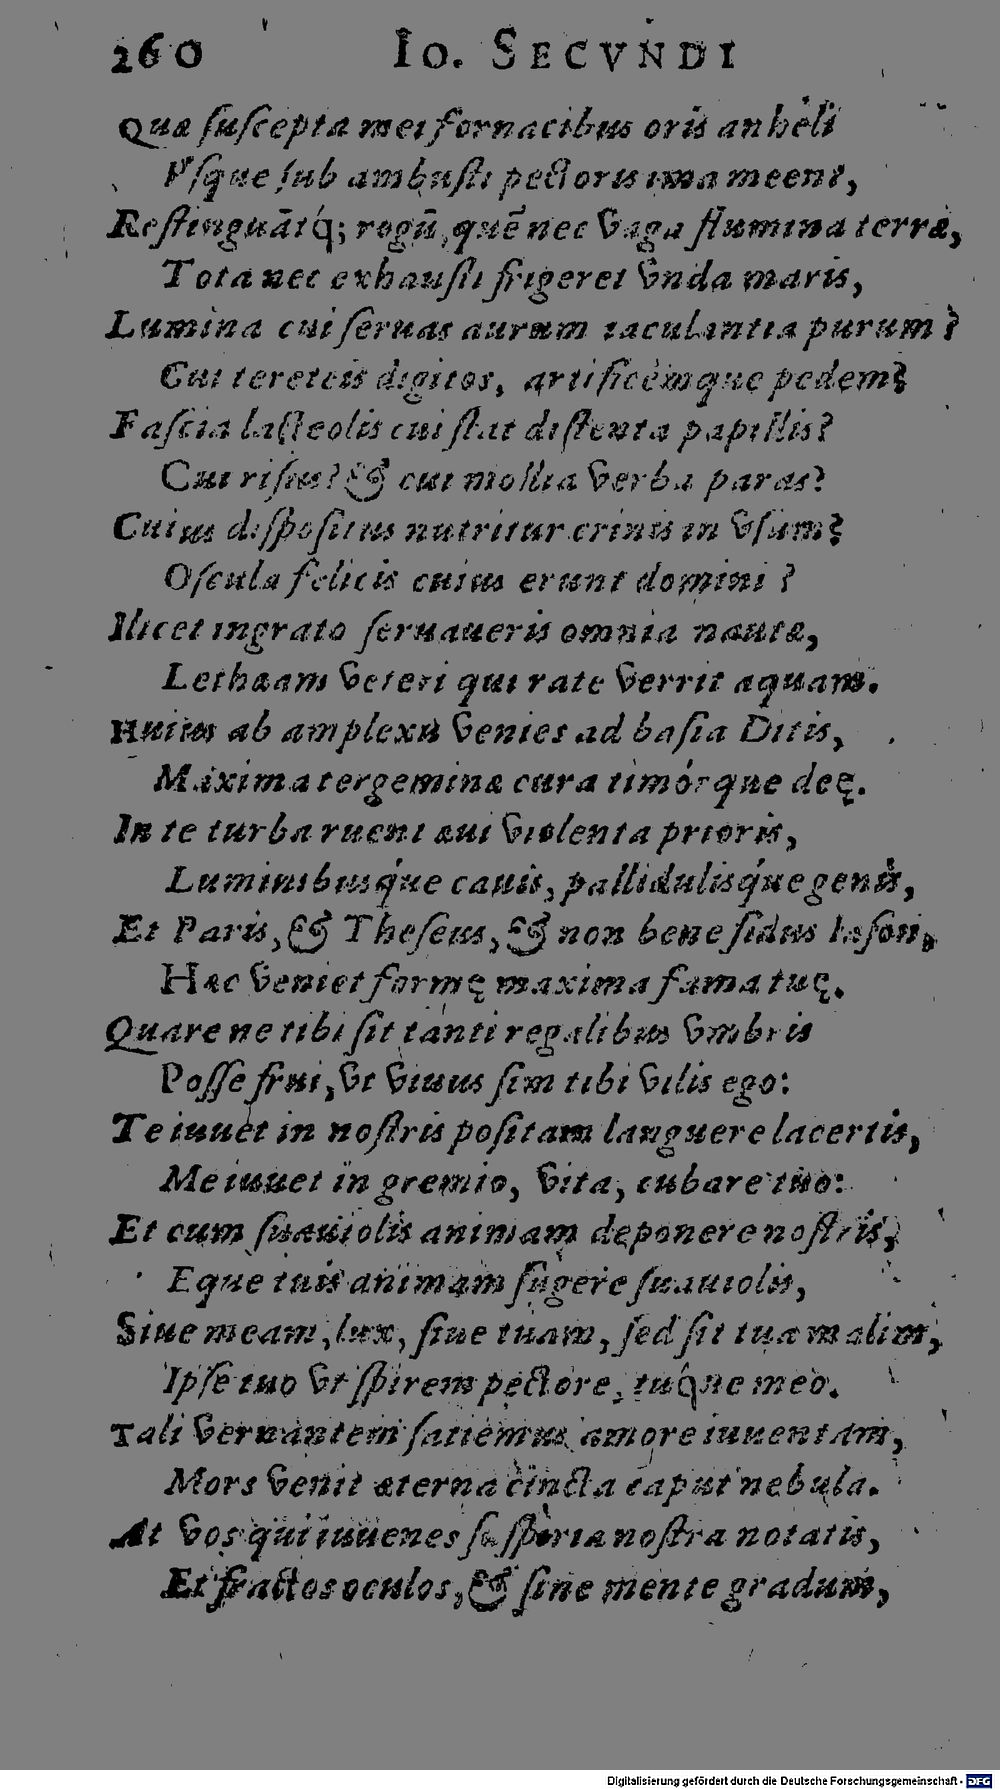 260 Io. SECVNDI
Quæ ſuſcepta mei fornacibus oris anhèli
Vſque ſub ambuſti pectoris ima meent,
Reſtinguātq́; rogū, quē nec vaga flumina terræ,
Tota nec exhauſti frigeret vnda maris,
Lumina cui ſeruas aurum iaculantia purum?
Cui tereteis digitos, artificémque pedem?
Faſcia lacteolis cui ſtat diſtenta papillis?
Cui riſus? & cui mollia verba paras?
Cuius diſpoſitus nutritur crinis in vſum?
Oſcula felicis cuius erunt domini?
Ilicet ingrato ſeruaueris omnia nautæ,
Lethæam veteri qui rate verrit aquam.
Huius ab amplexu venies ad baſia Ditis,
Maxima tergeminæ cura timórque deę.
In te turba ruent æui violenta prioris,
Luminibusq́ue cauis, pallidulisq́ue genis,
Et Paris, & Theſeus, & non bene fidus Iaſon,
Hæc veniet formę maxima fama tuę.
Quare ne tibi ſit tanti regalibus vmbris
Poſſe frui, vt viuus ſim tibi vilis ego:
Te iuuet in noſtris poſitam languere lacertis,
Me iuuet in gremio, vita, cubare tuo:
Et cum ſuauiolis animam deponere noſtris,
Eque tuis animam ſugere ſuauiolis,
Siue meam, lux, ſiue tuam, ſed ſit tua malim,
Ipſe tuo vt ſpirem pectore, tuq́ue meo.
Tali vernantem ſatiemus amore iuuentam,
Mors venit æterna cincta caput nebula.
At vos qui iuuenes ſuſpiria noſtra notatis,
Et fractos oculos, & ſine mente gradum,
Digitalisierung gefördert durch die Deutsche Forschungsgemeinschaft - DFG